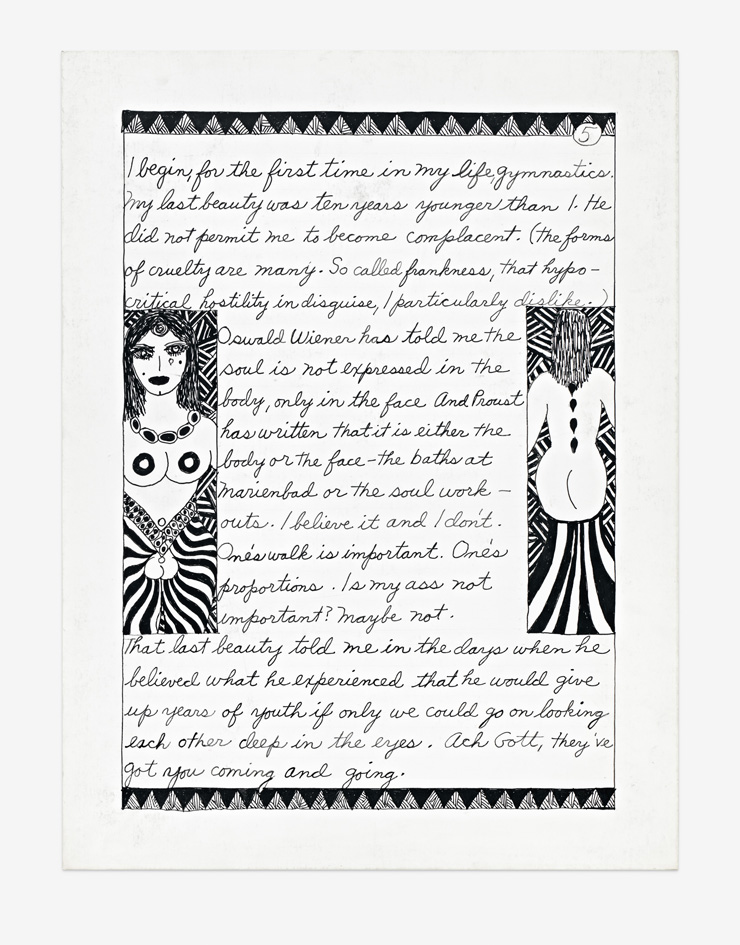 5
I begin, for the first time in my life, gymnastics.
My last beauty was ten years younger than I. He
did not permit me to become complacent. (The forms
of cruelty are many. So called frankness, that hypo-
critical hostility in disguise, I particularly dislike.)
Oswald Wiener has told me the
soul is not expressed in the
body, only in the face. And Proust
has written that it is either the
body or the face - the baths at
Marienbad or the soul work -
outs. I believe it and I don't.
One's walk is important. One's
proportions. Is my ass not
important? Maybe not.
That last beauty told me in the days when he
believed what he experienced that he would give
up years of youth if only we could go on looking
each other deep in the eyes. Ach Gott, they've
got you coming and going.